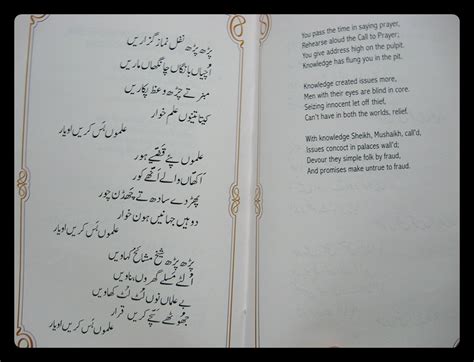 پڑھ پڑھ نفل نماز گزاریں
اُچیاں بانگاں چانگھاں ماریں
منبر تے چڑھ وعظ پکاریں
کیتا تینوں علم خوار
علموں بس کریں اویار
علموں پئے قضیے ہور
اکھاں والے اَنھے کور
پھڑدے سادھ تے چھڈن چور
دوہیں جہانیں ہون خوار
علموں بس کریں اویار
پڑھ پڑھ شیخ مشائخ کہاویں
اُلٹے مسئلے گھروں بناویں
بے علماں نوں لُٹ لُٹ کھاویں
جھوٹھے سچے کریں قرار
علموں بس کریں اویار
You pass the time in saying prayer,
Rehearse aloud the Call to Prayer;
You give address high on the pulpit.
Knowledge has flung you in the pit.
Knowledge created issues more,
Men with their eyes are blind in core.
Seizing innocent let off thief,
Can't have in both the worlds, relief.
With knowledge Sheikh, Mushaikh, call'd,
Issues concoct in palaces wall'd;
Devour they simple folk by fraud,
And promises make untrue to fraud.